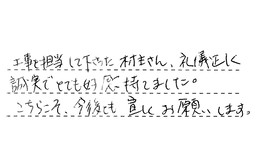 工事を担当して下さった村主さん、礼儀正しく
誠実でとても好感持てました。
こちらこそ、今後も宜しくお願いします。